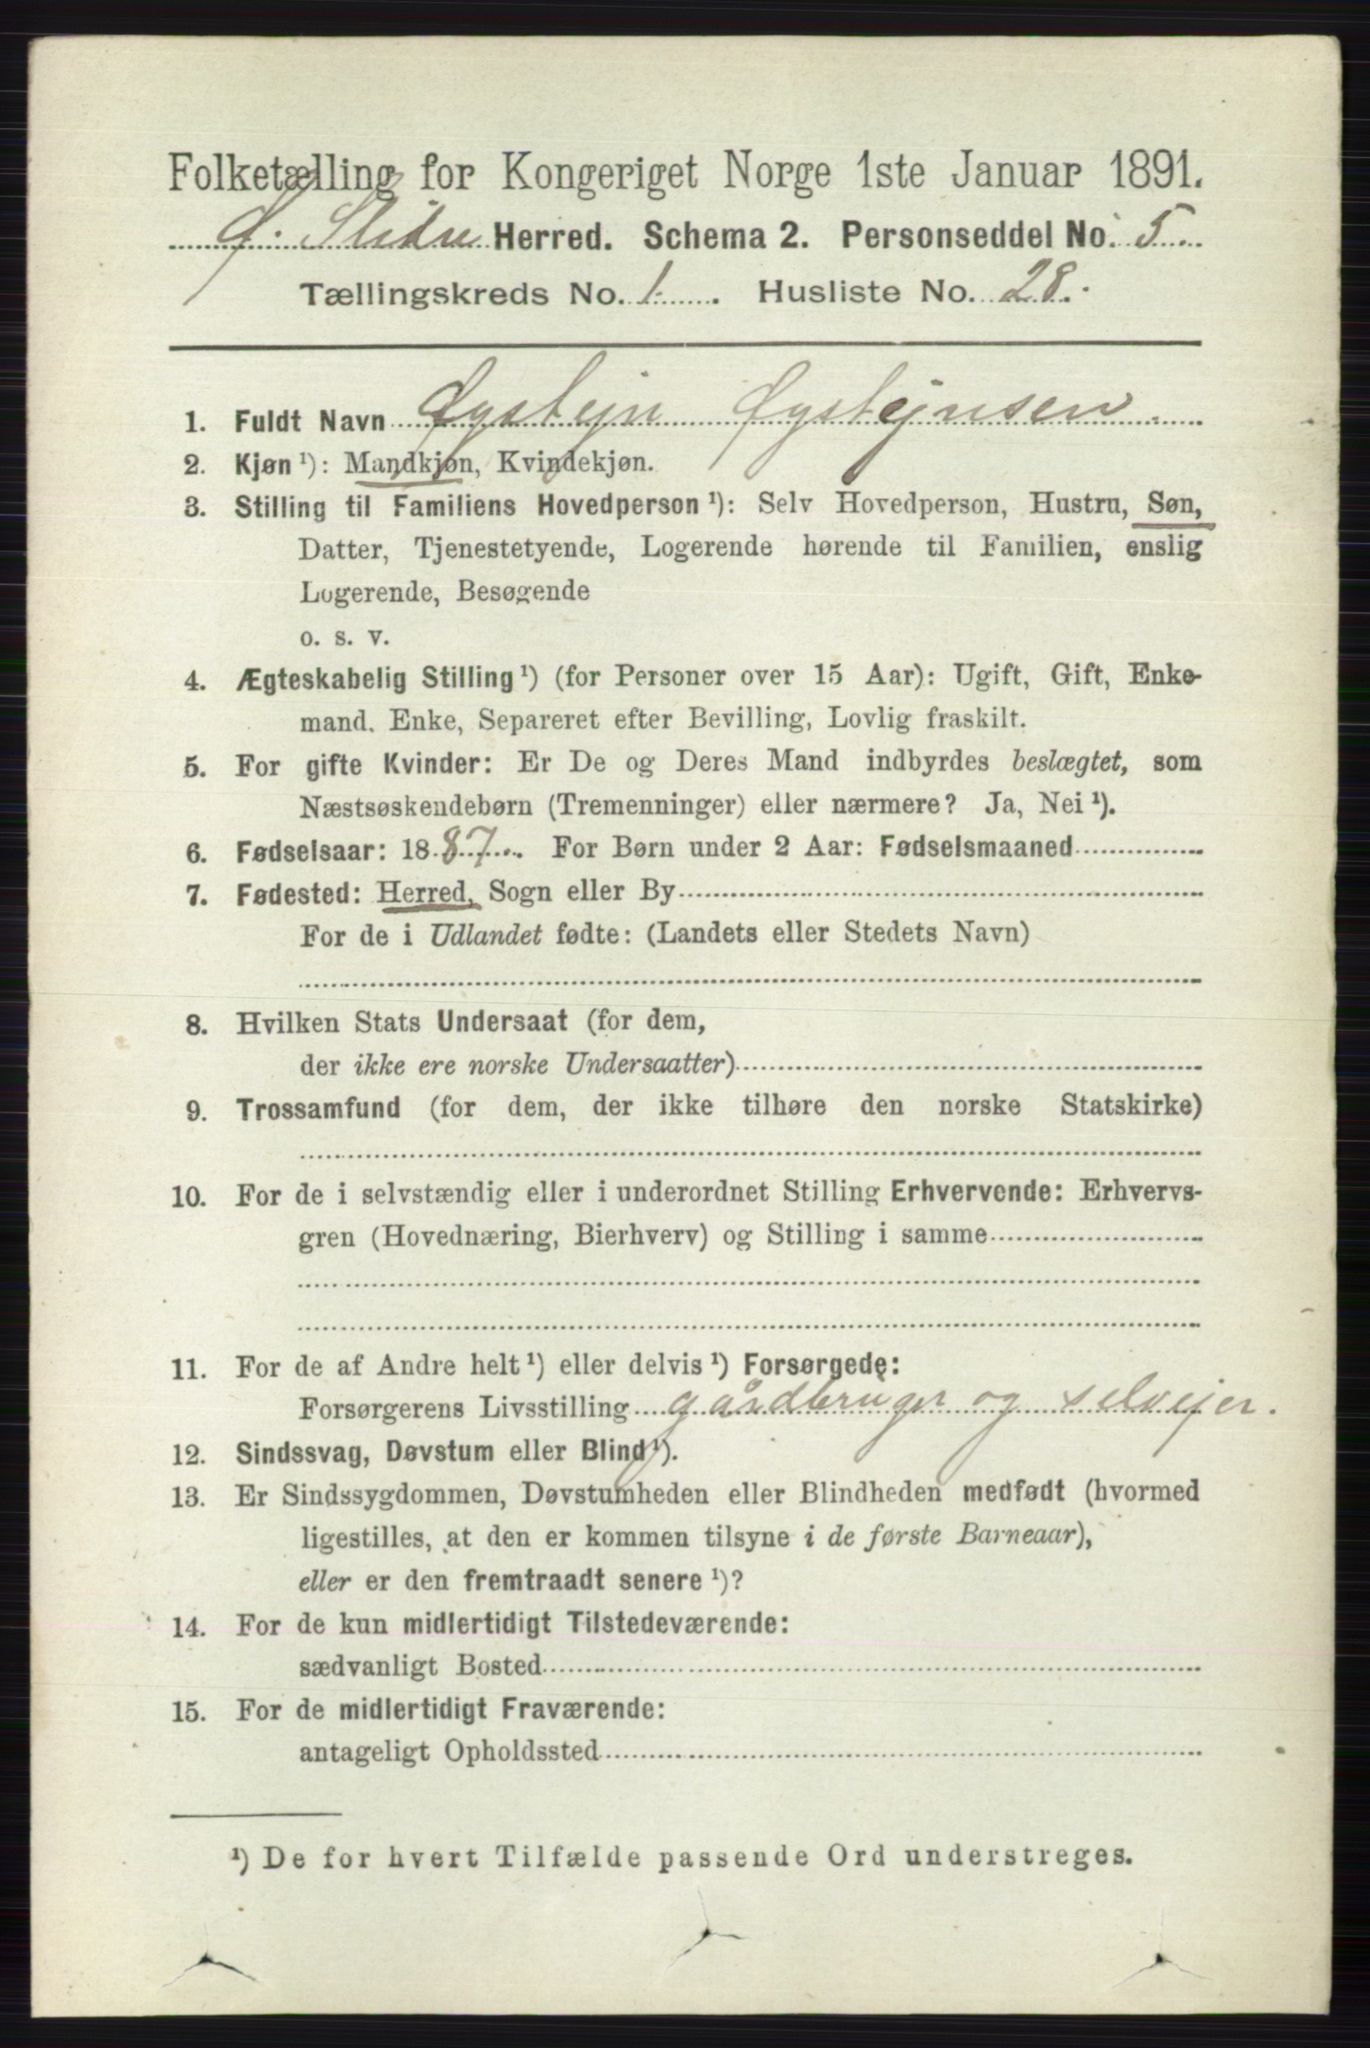 Folketælling for Kongeriget Norge 1ste Januar 1891.
Ø. Slidre Herred. Schema 2. Personseddel No. 5
Tællingskreds No. 1. Husliste No. 28.
1. Fuldt Navn Øystejn Øystejnsen.
2. Kjøn ¹): Mandkjøn, Kvindekjøn.
3. Stilling til Familiens Hovedperson ¹): Selv Hovedperson, Hustru, Søn,
Datter, Tjenestetyende, Logerende hørende til Familien, enslig
Logerende, Besøgende
o. s. v.
4. Ægteskabelig Stilling ¹) (for Personer over 15 Aar): Ugift, Gift, Enke-
mand, Enke, Separeret efter Bevilling, Lovlig fraskilt.
5. For gifte Kvinder: Er De og Deres Mand indbyrdes beslægtet, som
Næstsøskendebørn (Tremenninger) eller nærmere? Ja, Nei ¹).
6. Fødselsaar: 1887. For Børn under 2 Aar: Fødselsmaaned
7. Fødested: Herred, Sogn eller By
For de i Udlandet fødte: (Landets eller Stedets Navn)
8. Hvilken Stats Undersaat (for dem,
der ikke ere norske Undersaatter)
9. Trossamfund (for dem, der ikke tilhøre den norske Statskirke)
10. For de i selvstændig eller i underordnet Stilling Erhvervende: Erhvervs-
gren (Hovednæring, Bierhverv) og Stilling i samme
11. For de af Andre helt ¹) eller delvis ¹) Forsørgede:
Forsørgerens Livsstilling gårdbruger og selvejer.
12. Sindssvag, Døvstum eller Blind ¹).
13. Er Sindssygdommen, Døvstumheden eller Blindheden medfødt (hvormed
ligestilles, at den er kommen tilsyne i de første Barneaar),
eller er den fremtraadt senere ¹)?
14. For de kun midlertidigt Tilstedeværende:
sædvanligt Bosted
15. For de midlertidigt Fraværende:
antageligt Opholdssted
¹) De for hvert Tilfælde passende Ord understreges.